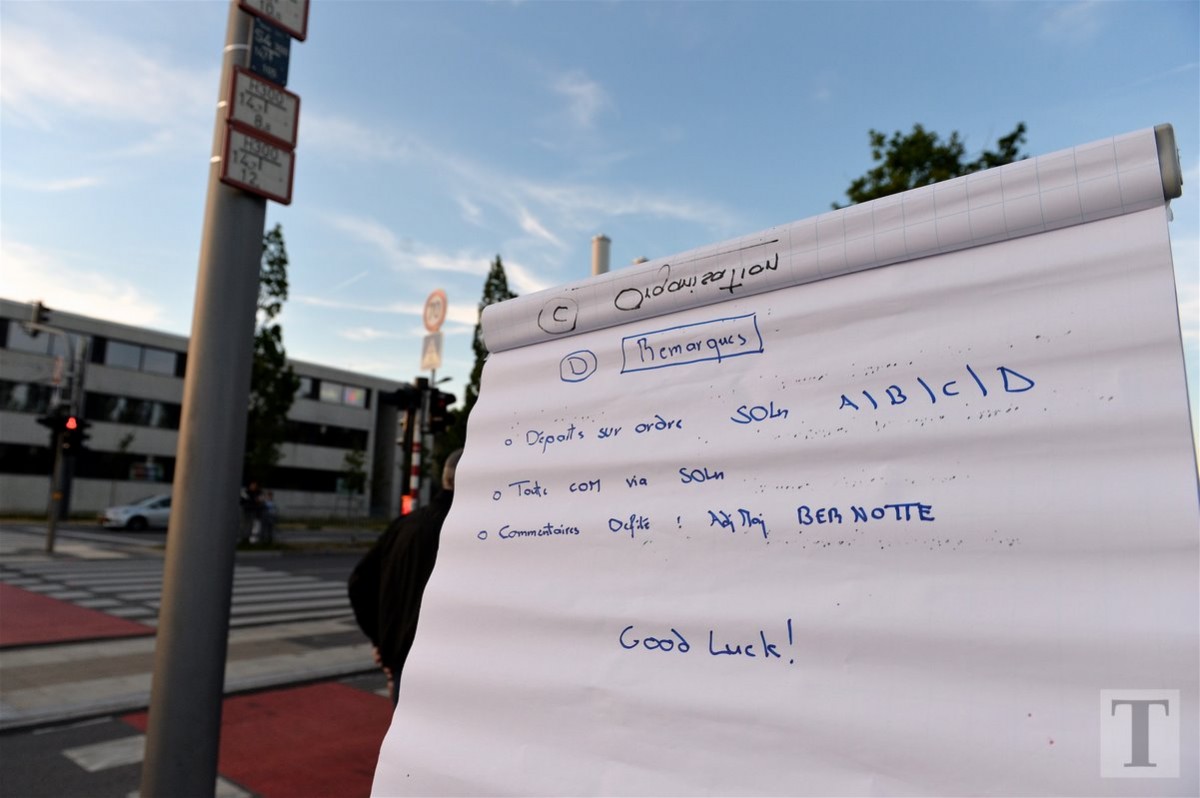 H300
14,1
8,8
H300
14,1
12,
70
C Organisation
D Remarques
o Départs sur ordre SOLn A/B/C/D
o Toute com via SOLn
o Commentaires Défilé : Adj Maj BERNOTTE
Good Luck!
T